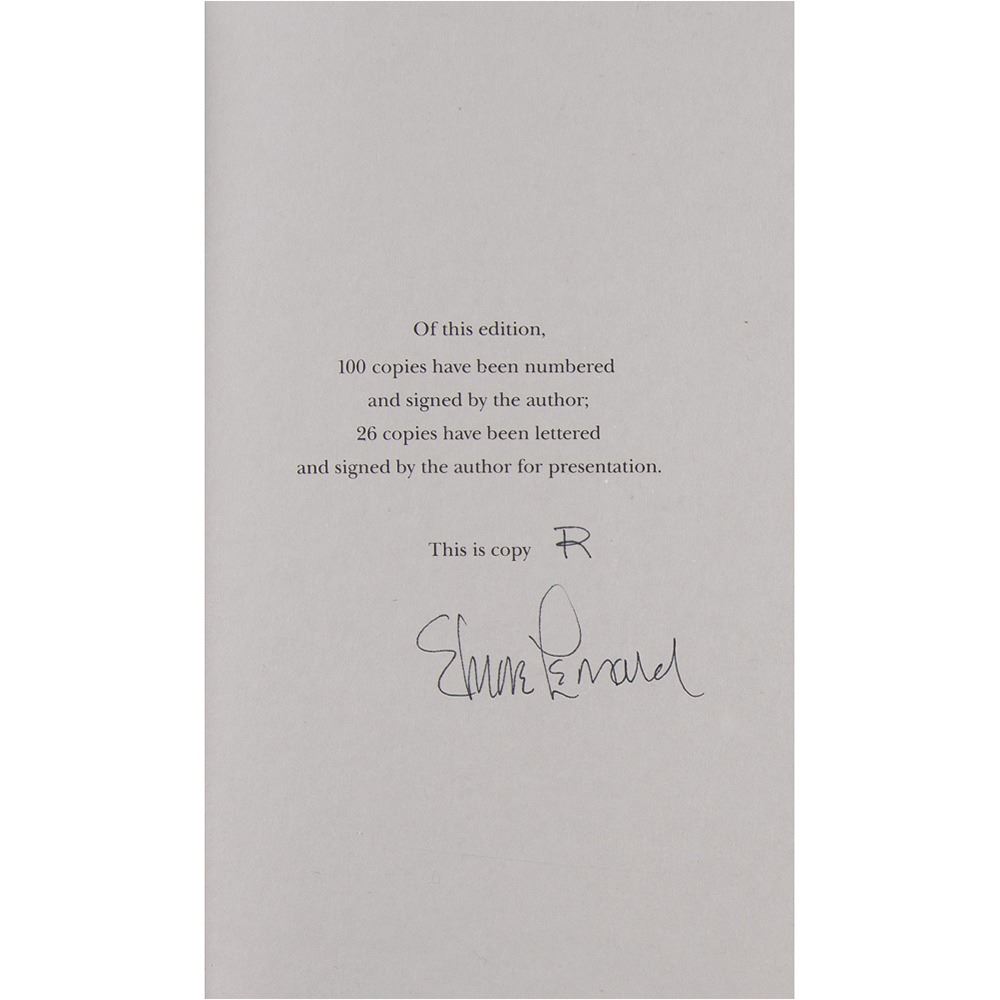 Of this edition,
100 copies have been numbered
and signed by the author;
26 copies have been lettered
and signed by the author for presentation.
This is copy R
Elmore Leonard